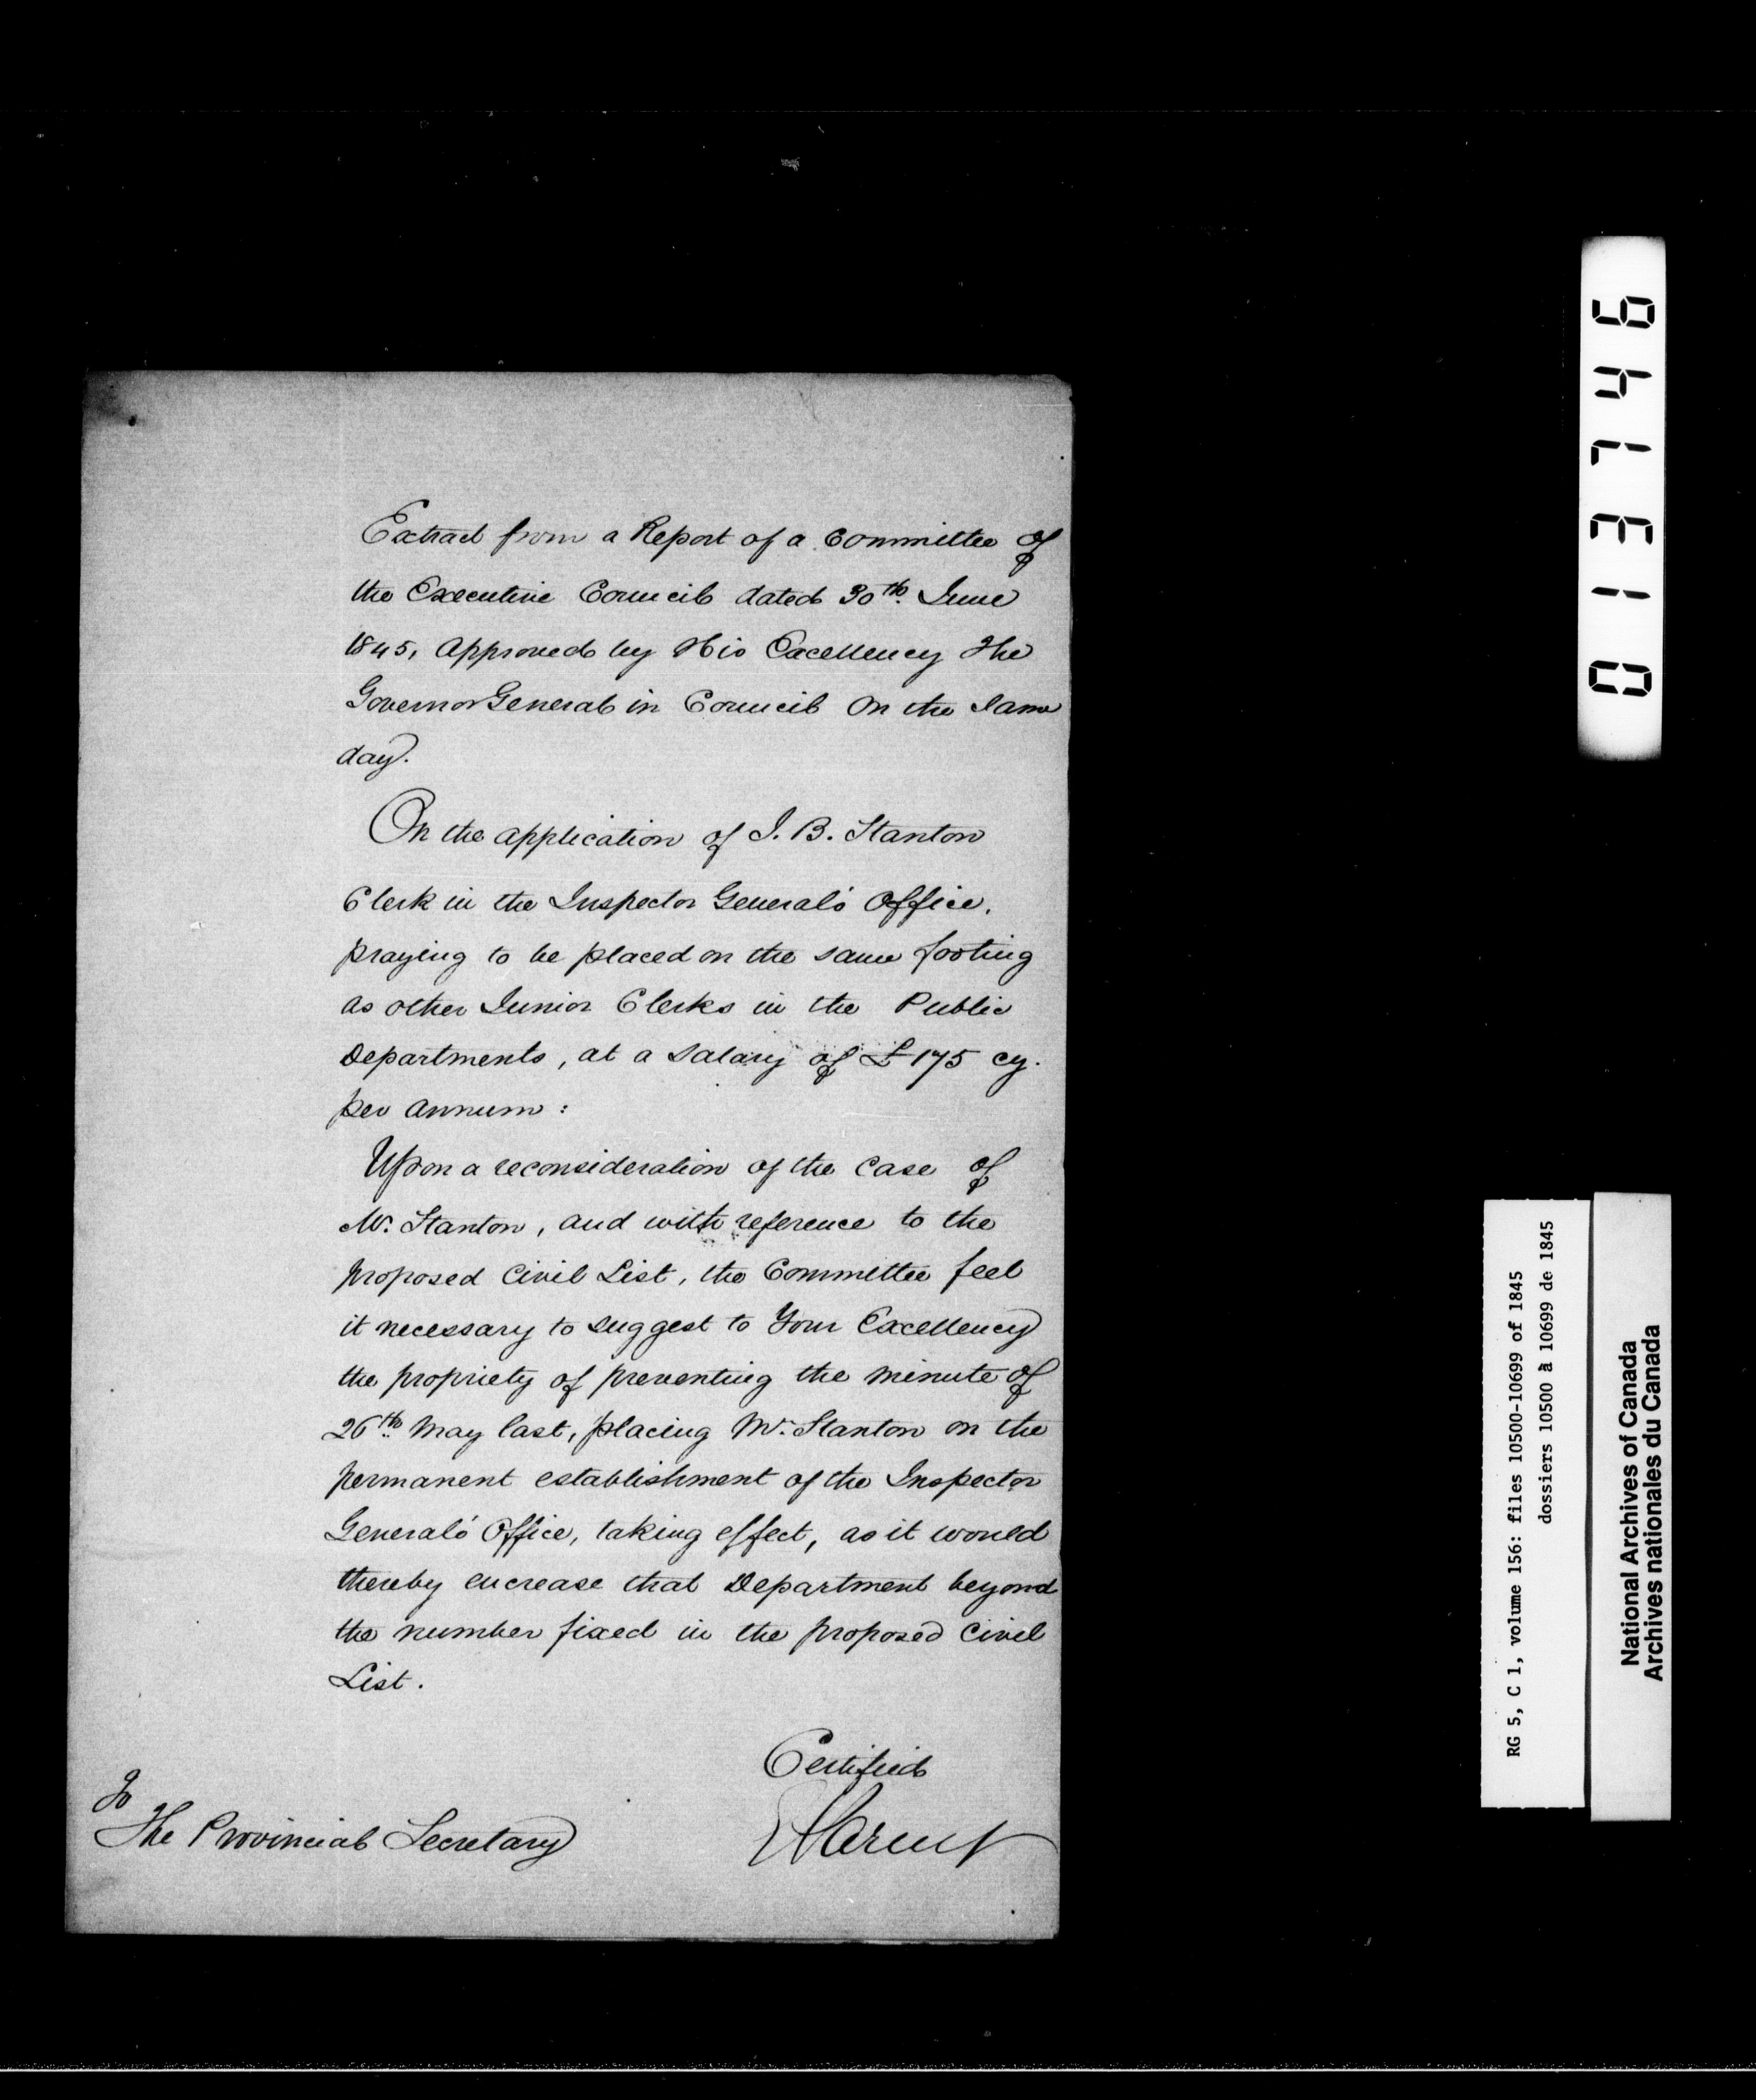 Extract from a Report of a Committee of
the Executive Council dated 30th. June
1845, Approved by His Excellency The
Governor General in Council On the same
day.
On the application of J. B. Stanton
Clerk in the Inspector General's Office,
praying to be placed on the same footing
as other Junior Clerks in the Public
Departments, at a Salary of £175 cy.
per annum:
Upon a reconsideration of the case of
Mr. Stanton, and with reference to the
proposed Civil List, the Committee feel
it necessary to suggest to Your Excellency
the propriety of preventing the minute of
26th. May last, placing Mr. Stanton on the
permanent establishment of the Inspector
General's Office, taking effect, as it would
thereby encrease that Department beyond
the number fixed in the proposed Civil
List.
Certified
To
The Provincial Secretary
013746
RG 5, C 1, volume 156: files 10500-10699 of 1845
dossiers 10500 à 10699 de 1845
National Archives of Canada
Archives nationales du Canada